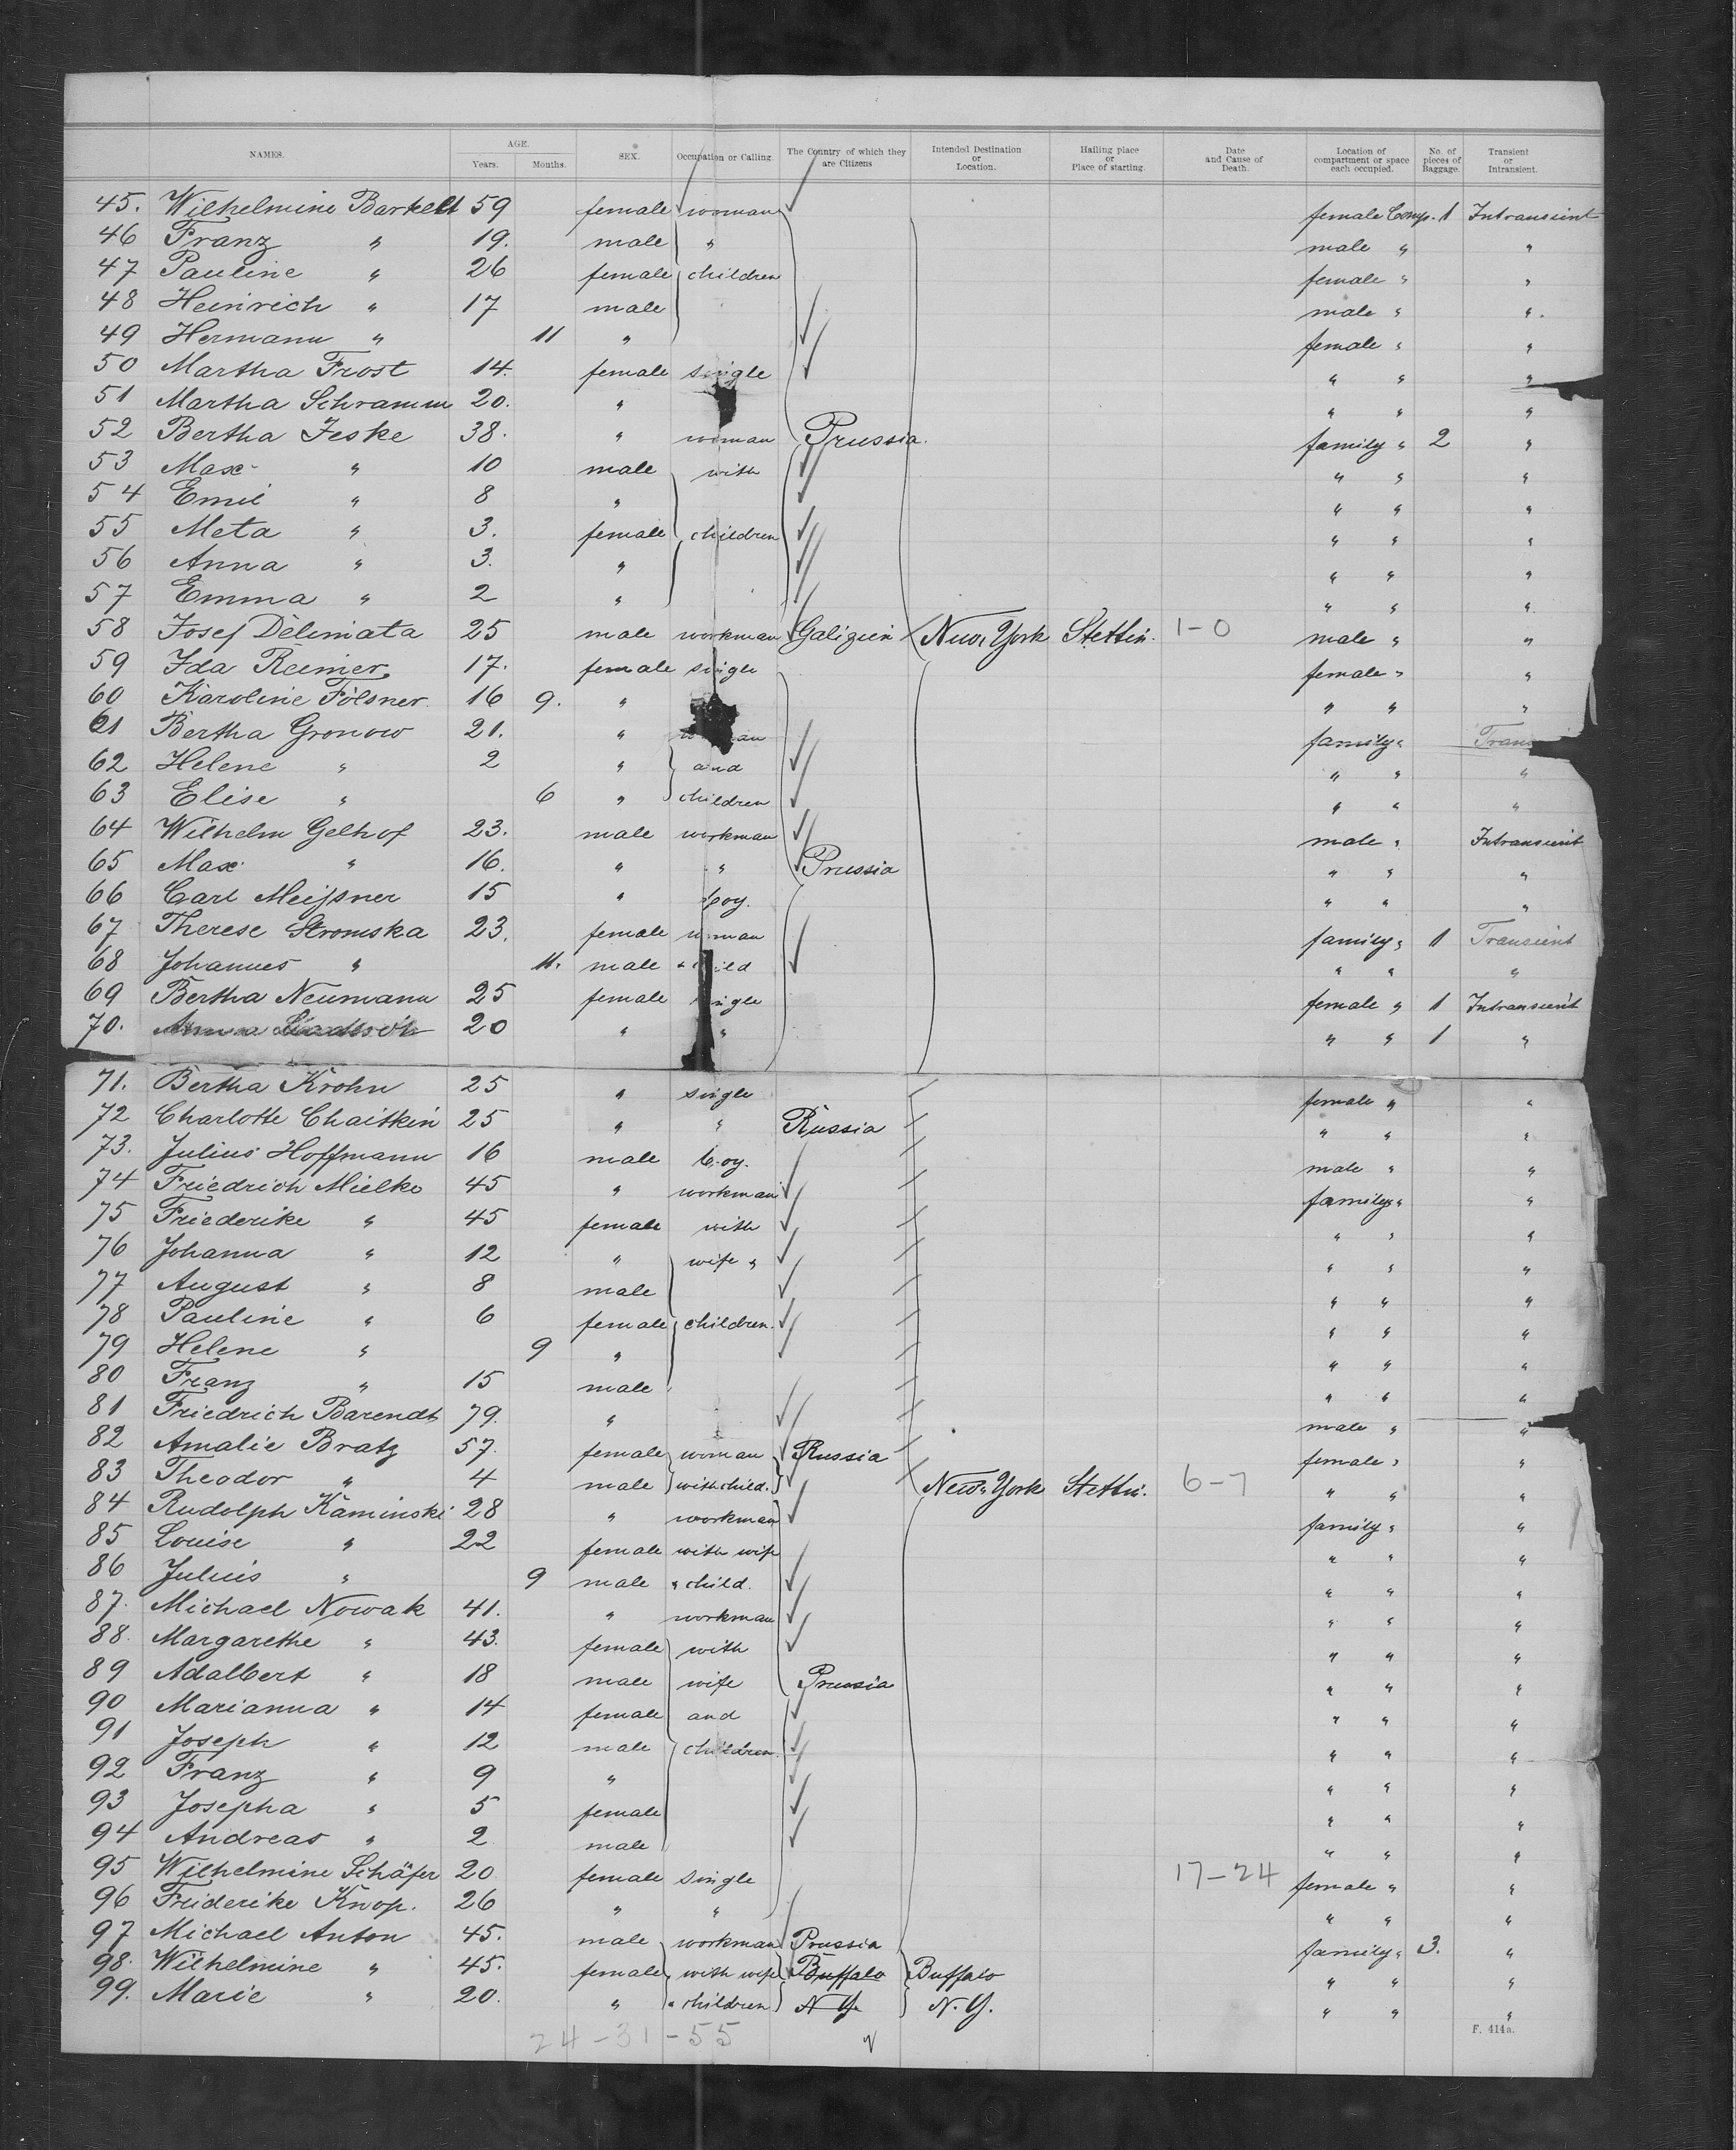 NAMES. AGE. Years. Months. SEX. Occupation or Calling. The Country of which they are Citizens Intended Destination or Location. Hailing place or Place of starting. Date and Cause of Death. Location of compartment or space each occupied. No. of pieces of Baggage. Transient or Intransient.
45. Wilhelmine Barkelt 59 female woman female Comp. 1 Intransient
46 Franz " 19. male " male " "
47 Pauline " 26 female children female " "
48 Heinrich " 17 male male " "
49 Hermann " 11 " female " "
50 Martha Frost 14. female single " " "
51 Martha Schramm 20. " " " "
52 Bertha Jeske 38. " woman Prussia. family " 2 "
53 Max " 10 male with " " "
54 Emil " 8 " " " "
55 Meta " 3. female children " " "
56 Anna " 3. " " " "
57 Emma " 2 " " " "
58 Josef Delimata 25 male workman Galizien New York Stettin. 1-0 male " "
59 Ida Reimer 17. female single female " "
60 Karoline Fölsner. 16 9. " " " "
61 Bertha Gronow 21. " family "
62 Helene " 2 " and " " "
63 Elise " 6 " children " " "
64 Wilhelm Gelhof 23. male workman male " Intransient
65 Max " 16. " " Prussia " " "
66 Carl Meißner 15 " boy. " " "
67 Therese Stromska 23. female woman family " 1 Transient
68 Johannes " 11. male " child " " "
69 Bertha Neumann 25 female single female " 1 Intransient
70. 20 " " " " 1 "
71. Bertha Krohn 25 " single female " "
72 Charlotte Chaitkin 25 " " Russia " " "
73. Julius Hoffmann 16 male boy. male " "
74 Friedrich Mielke 45 " workman family " "
75 Friederike " 45 female with " " "
76 Johanna " 12 " wife " " " "
77 August " 8 male " " "
78 Pauline " 6 female children. " " "
79 Helene " 9 " " " "
80 Franz " 15 male " " "
81 Friedrich Barendt 79. " male " "
82 Amalie Bratz 57. female woman Russia female " "
83 Theodor " 4 male with child. New York Stettin. 6-7 " " "
84 Rudolph Kaminski 28 " workman family " "
85 Louise " 22 female with wife " " "
86 Julius " 9 male " child. " " "
87. Michael Nowak 41. " workman " " "
88. Margarethe " 43. female with " " "
89 Adalbert " 18 male wife Prussia " " "
90 Marianna " 14 female and " " "
91 Joseph " 12 male children. " " "
92 Franz " 9 " " " "
93 Josepha " 5 female " " "
94 Andreas " 2 male " " "
95 Wilhelmine Schäfer 20 female single 17-24 female " "
96 Friderike Knop. 26 " " " " "
97 Michael Anton 45. male workman Prussia family " 3. "
98. Wilhelmine " 45. female with wife Buffalo Buffalo " " "
99. Marie " 20. " " children N.Y. N.Y. " " "
24-31-55
F. 414a.